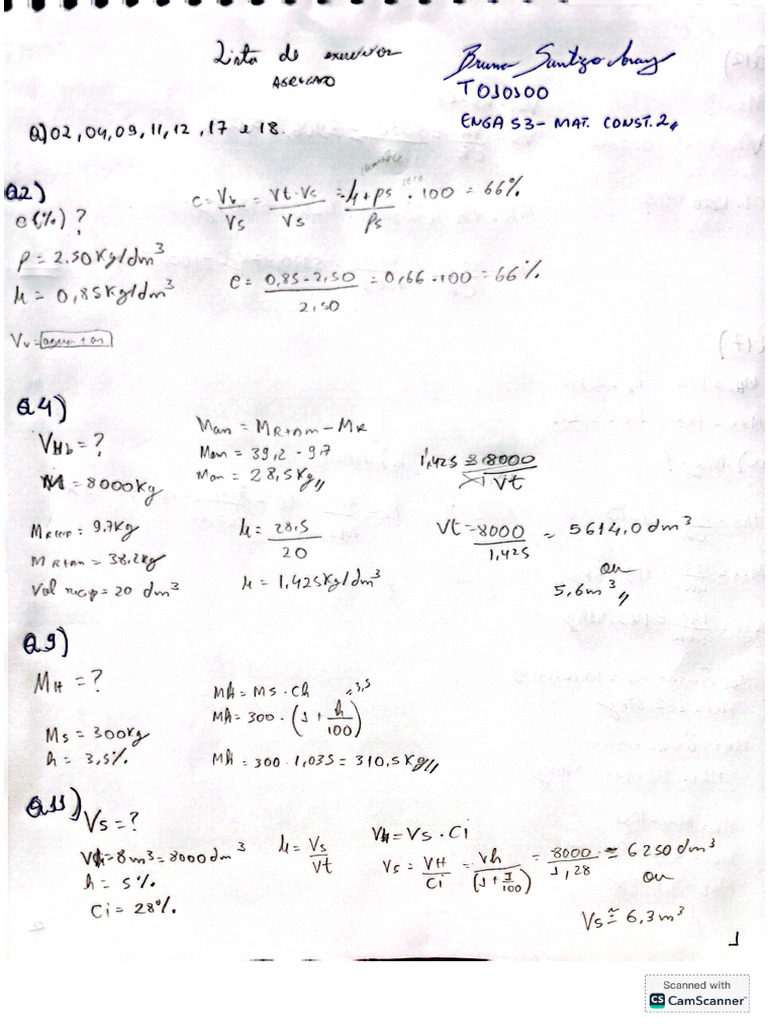 Lista de exercícios
AGREGADO
Bruna Santiago
T010100
ENGA 53 - MAT. CONST. 2
Q) 02, 04, 09, 11, 12, 17 e 18.
Q2)
e(%) ?
ρ = 2.50 Kg/dm³
μ = 0,85 Kg/dm³
Vv = agua + ar
e = Vv/Vs = Vt - Vs/Vs = μ + ρs/ρs · 100 = 66%
e = 0,85 - 2,50/2,50 = 0,66 · 100 = 66%
Q4)
VHb = ?
M = 8000 Kg
M recip = 9,7 Kg
M R+Am = 38,2 Kg
Vol recip = 20 dm³
Mam = M R+Am - MR
Mam = 39,2 - 9,7
Mam = 28,5 Kg
μ = 28,5/20
μ = 1,425 Kg/dm³
1,425 = 8000/Vt
Vt = 8000/1,425 = 5614,0 dm³
ou
5,6 m³
Q9)
MH = ?
Ms = 300 Kg
h = 3,5%
Mh = Ms · Ch
Mh = 300 · (1 + h/100) 3,5
Mh = 300 · 1,035 = 310,5 Kg
Q11)
Vs = ?
Vh = 8 m³ = 8000 dm³
h = 5%
Ci = 28%
μ = Vs/Vt
Vh = Vs · Ci
Vs = VH/Ci = Vh/(1 + I/100) = 8000/1,28 ≅ 6250 dm³
ou
Vs ≅ 6,3 m³
1
Scanned with
CS CamScanner